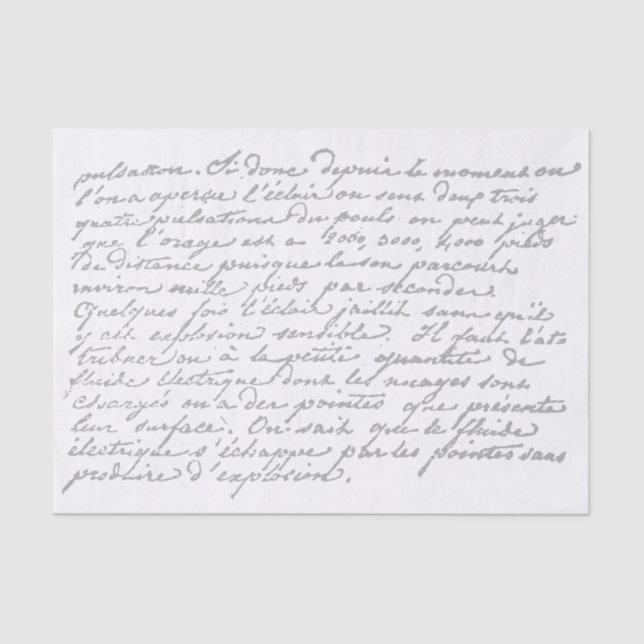 pulsation. Si donc depuis le moment ou
l'on a aperçue l'éclair on sent deux trois
quatre pulsations du pouls on peut juger
que l'orage est a 2000, 3000, 4000 pieds
de distance puisque le son parcourt
environ mille pieds par seconder.
Quelques fois l'éclair jaillit sans qu'il
y ait explosion sensible. Il faut l'at-
tribuer ou à la petite quantité de
fluide électrique dont les nuages sont
chargés ou a des pointes que présente
leur surface. On sait que le fluide
électrique s'échappe par les pointes sans
produire d'explosion.